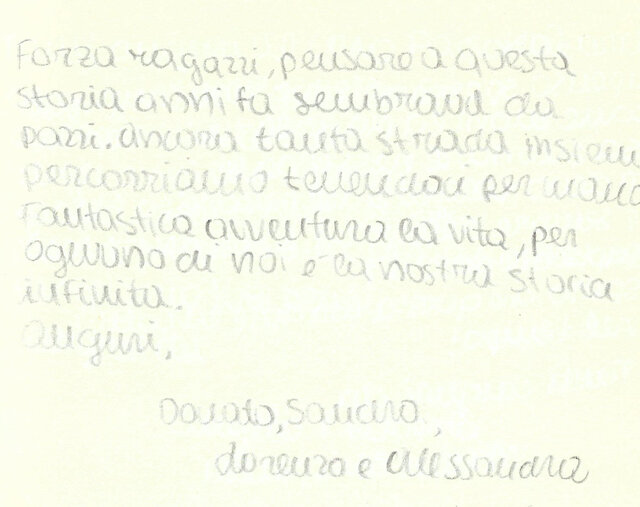 Forza ragazzi, pensare a questa
storia anni fa sembrava da
pazzi. Ancora tanta strada insiem
percorriamo tenendoci per mano
Fantastica avventura la vita, per
ognuno di noi è la nostra storia
infinita.
Auguri,
Donato, Sandro,
Lorenza e Alessandra